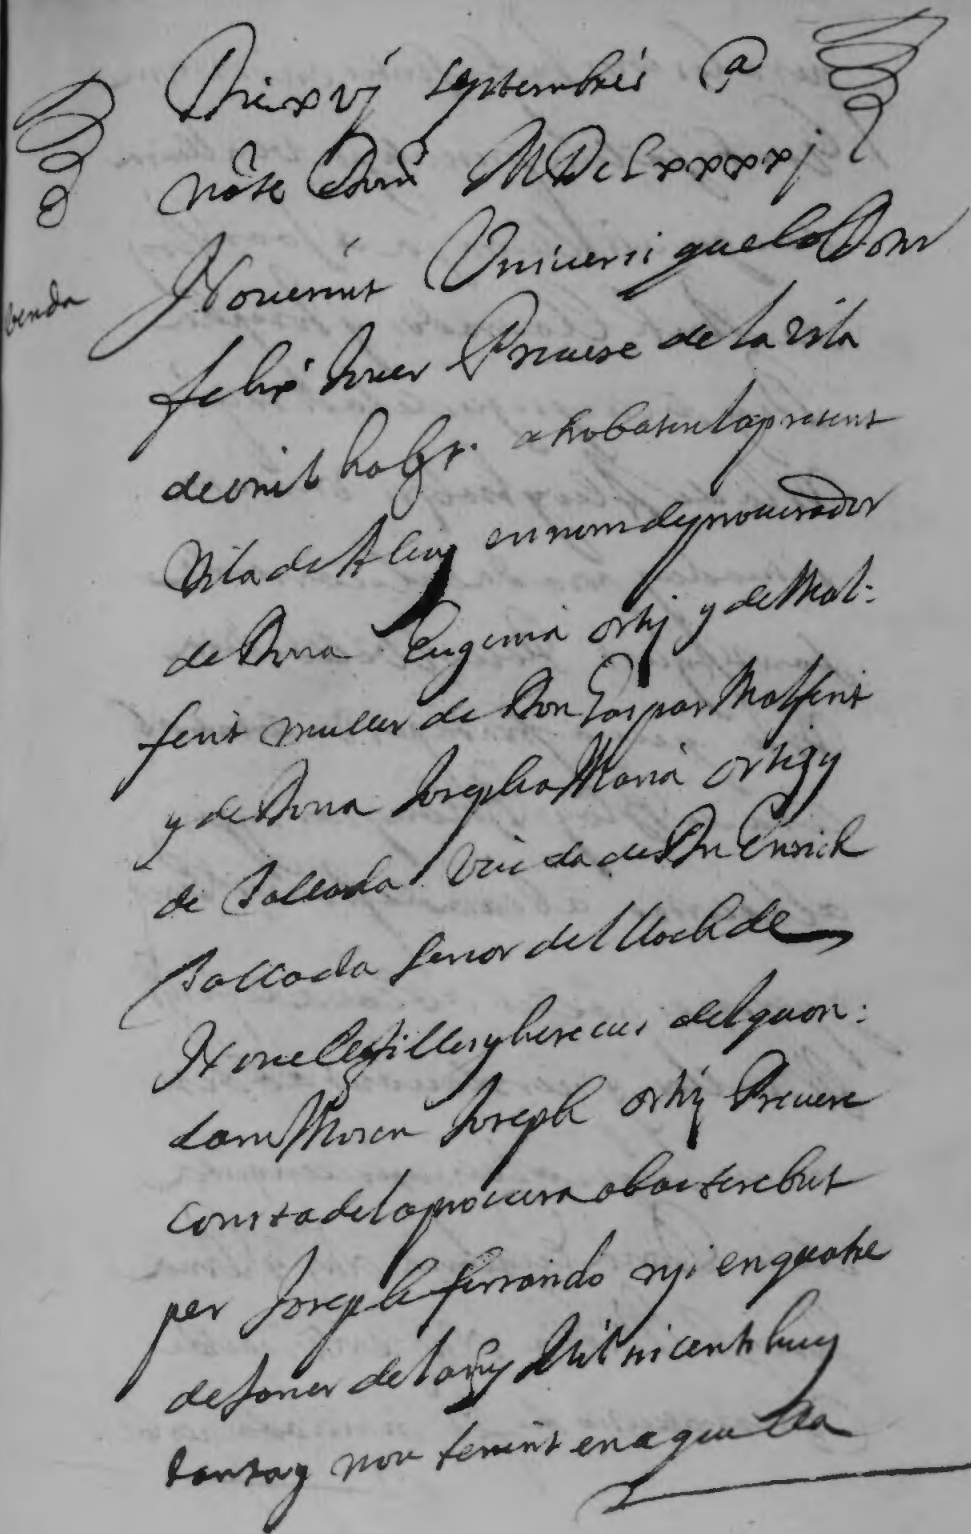 Die xvj septembris @
nŕe Dom MDCLxxxxj
venda
Noverint Universi que lo Dotor
felix Juan Prevere de la vila
de onil habŕ. atrobat en la present
vila de Alcoy en nom de procurador
de Dona Eugenia ortiz y de Mal-
ferit muller de Don Gaspar Malferit
y de Dona Josepha Maria ortiz y
de Salcada viuda de Dn Enrich
Salcada senor del lloch de
Novele filles y hereues del quon:
dam Mosen Joseph ortiz Prevere
consta de la procura ab acte rebut
per Joseph ferrando en quatre
de Janer del any Mil sicents huy
tanta y nou tenint en aquella